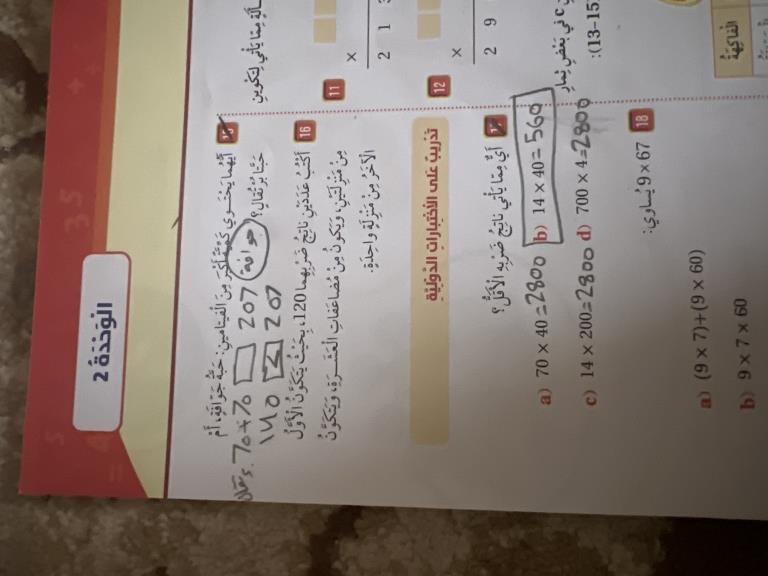 الْوَحْدَةُ 2
15 أَيُّهُما يَحْتَوي كَمِّيَّةً أَكْبَرَ مِنَ الْفيتامينِ: حَبَّةُ جَوّافَةٍ، أَمْ
حَبَّتا بُرْتُقالٍ؟ جوافة 207 70+70
207 140
16 أَكْتُبُ عَدَدَيْنِ ناتِجُ ضَرْبِهِما 120، بِحَيْثُ يَتَكَوَّنُ الْأَوَّلُ
مِنْ مَنْزِلَتَيْنِ، وَيَكونُ مِنْ مُضاعَفاتِ الْعَشَرَةِ، وَيَتَكَوَّنُ
الْآخَرُ مِنْ مَنْزِلَةٍ واحِدَةٍ.
تَدْريبٌ عَلى الِاخْتِباراتِ الدَّوْلِيَّةِ
17 أَيٌّ مِمّا يَأْتي ناتِجُ ضَرْبِهِ الْأَقَلُّ؟
a) 70 × 40 = 2800 b) 14 × 40 = 560
c) 14 × 200 = 2800 d) 700 × 4 = 2800
18 9 × 67 يُساوي:
a) (9 × 7) + (9 × 60)
b) 9 × 7 × 60
مِمّا يَأْتي لِتَكْوينِ
11
×
2 1
12
×
2 9
C في بَعْضِ ثِمارِ
(13-15):
الْفاكِهَةُ